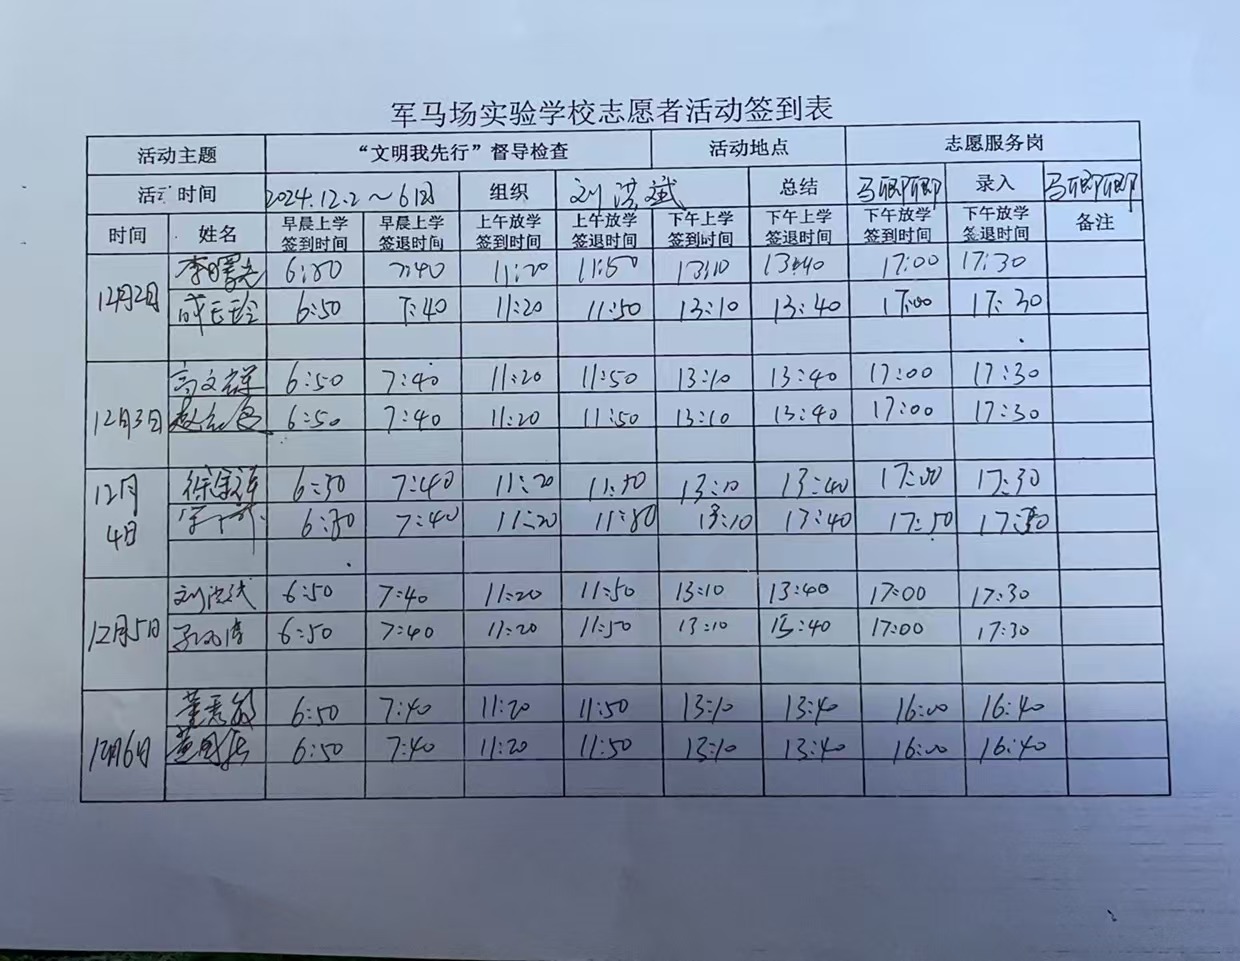 军马场实验学校志愿者活动签到表
活动主题 “文明我先行”督导检查 活动地点 志愿服务岗
活动时间 2024.12.2~6日 组织 刘洪斌 总结 录入
时间 姓名 早晨上学签到时间 早晨上学签退时间 上午放学签到时间 上午放学签退时间 下午上学签到时间 下午上学签退时间 下午放学签到时间 下午放学签退时间 备注
12月2日 李曙光 6:50 7:40 11:20 11:50 13:10 13:40 17:00 17:30
6:50 7:40 11:20 11:50 13:10 13:40 17:00 17:30
12月3日 6:50 7:40 11:20 11:50 13:10 13:40 17:00 17:30
6:50 7:40 11:20 11:50 13:10 13:40 17:00 17:30
12月4日 7:40 11:20 13:10 13:40 17:00 17:30
7:40 11:20 13:10 17:40 17:50
12月5日 6:50 7:40 11:20 11:50 13:10 13:40 17:00 17:30
6:50 7:40 11:20 11:50 13:10 17:00 17:30
12月6日 6:50 7:40 11:20 11:50 13:10 13:40 16:00 16:40
6:50 7:40 11:20 11:50 13:10 13:40 16:00 16:40